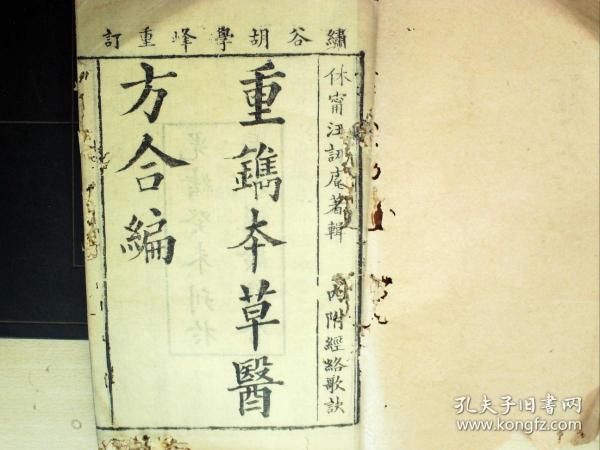 繡谷胡學峰重訂
休甯汪訒庵著輯 內附經絡歌訣
重鐫本草醫
方合編
光緒癸未列於
孔夫子旧书网
www.kongfz.com